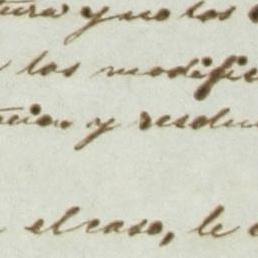 y no los
los modific
y resolu
el caso, le